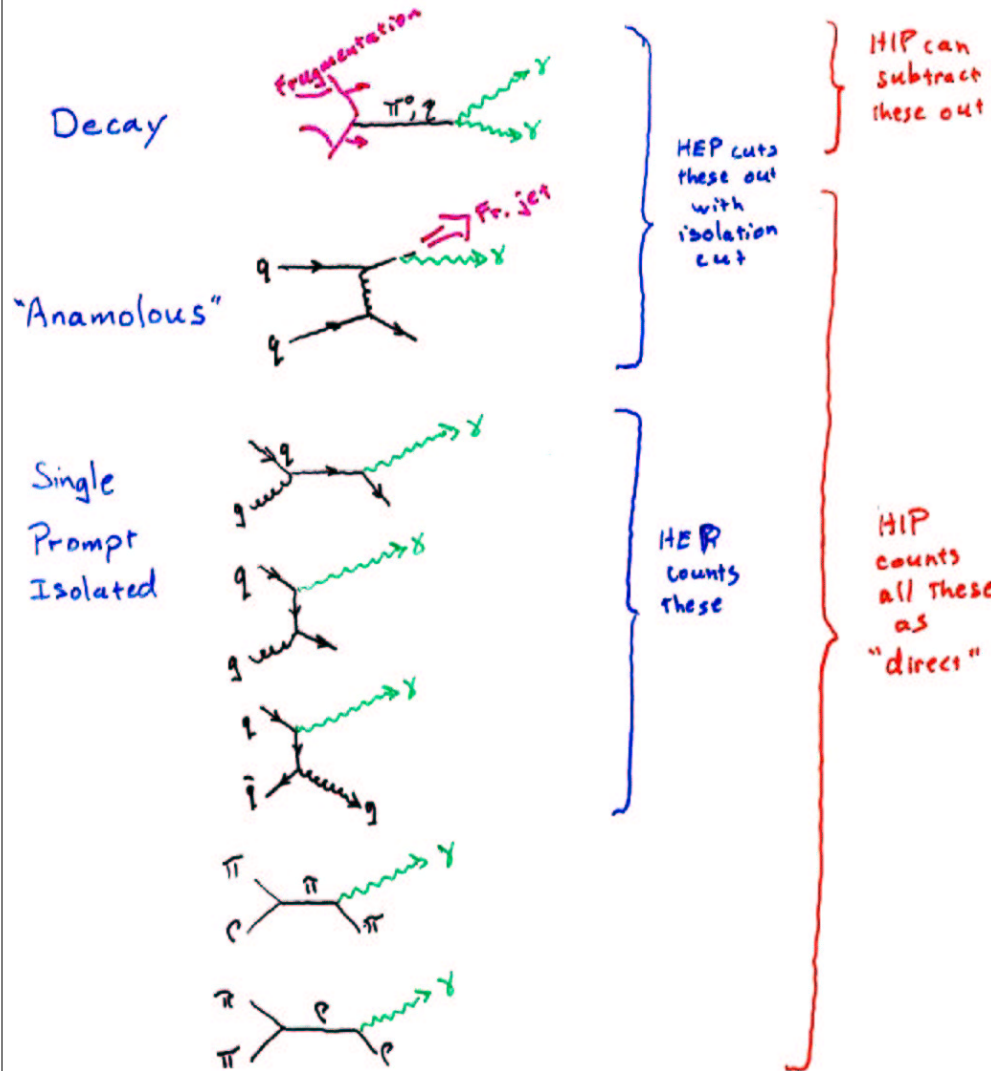 Fragmentation
Decay
π°, η
γ
γ
HEP cuts
these out
with
isolation
cut
HIP can
subtract
these out
"Anamolous"
Fr. jet
q
γ
q
Single
Prompt
Isolated
q
γ
g
q
γ
g
q
γ
q̄
g
HEP
counts
these
HIP
counts
all these
as
"direct"
π
π
γ
ρ
π
π
ρ
γ
π
ρ